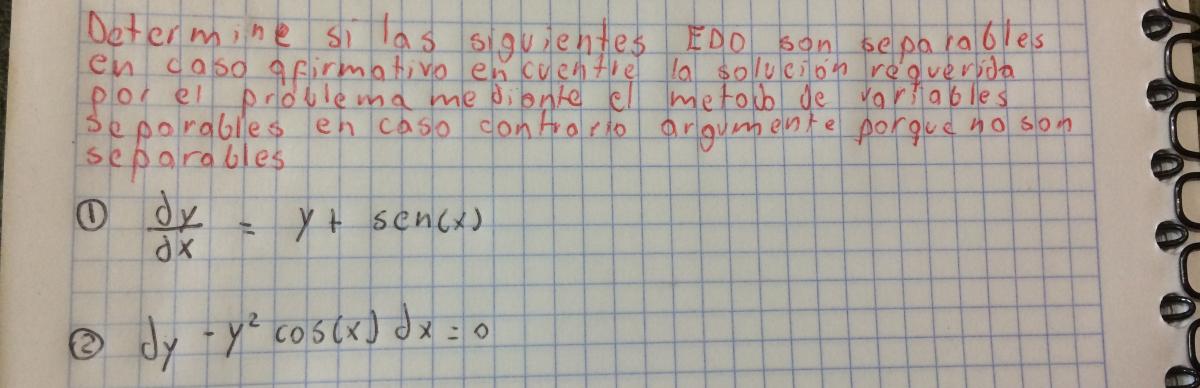 Determine si las siguientes EDO son separables
en caso afirmativo encuentre la solución requerida
por el problema mediante el metodo de variables
separables en caso contrario argumente porque no son
separables
① dy/dx = y + sen(x)
② dy - y² cos(x) dx = 0